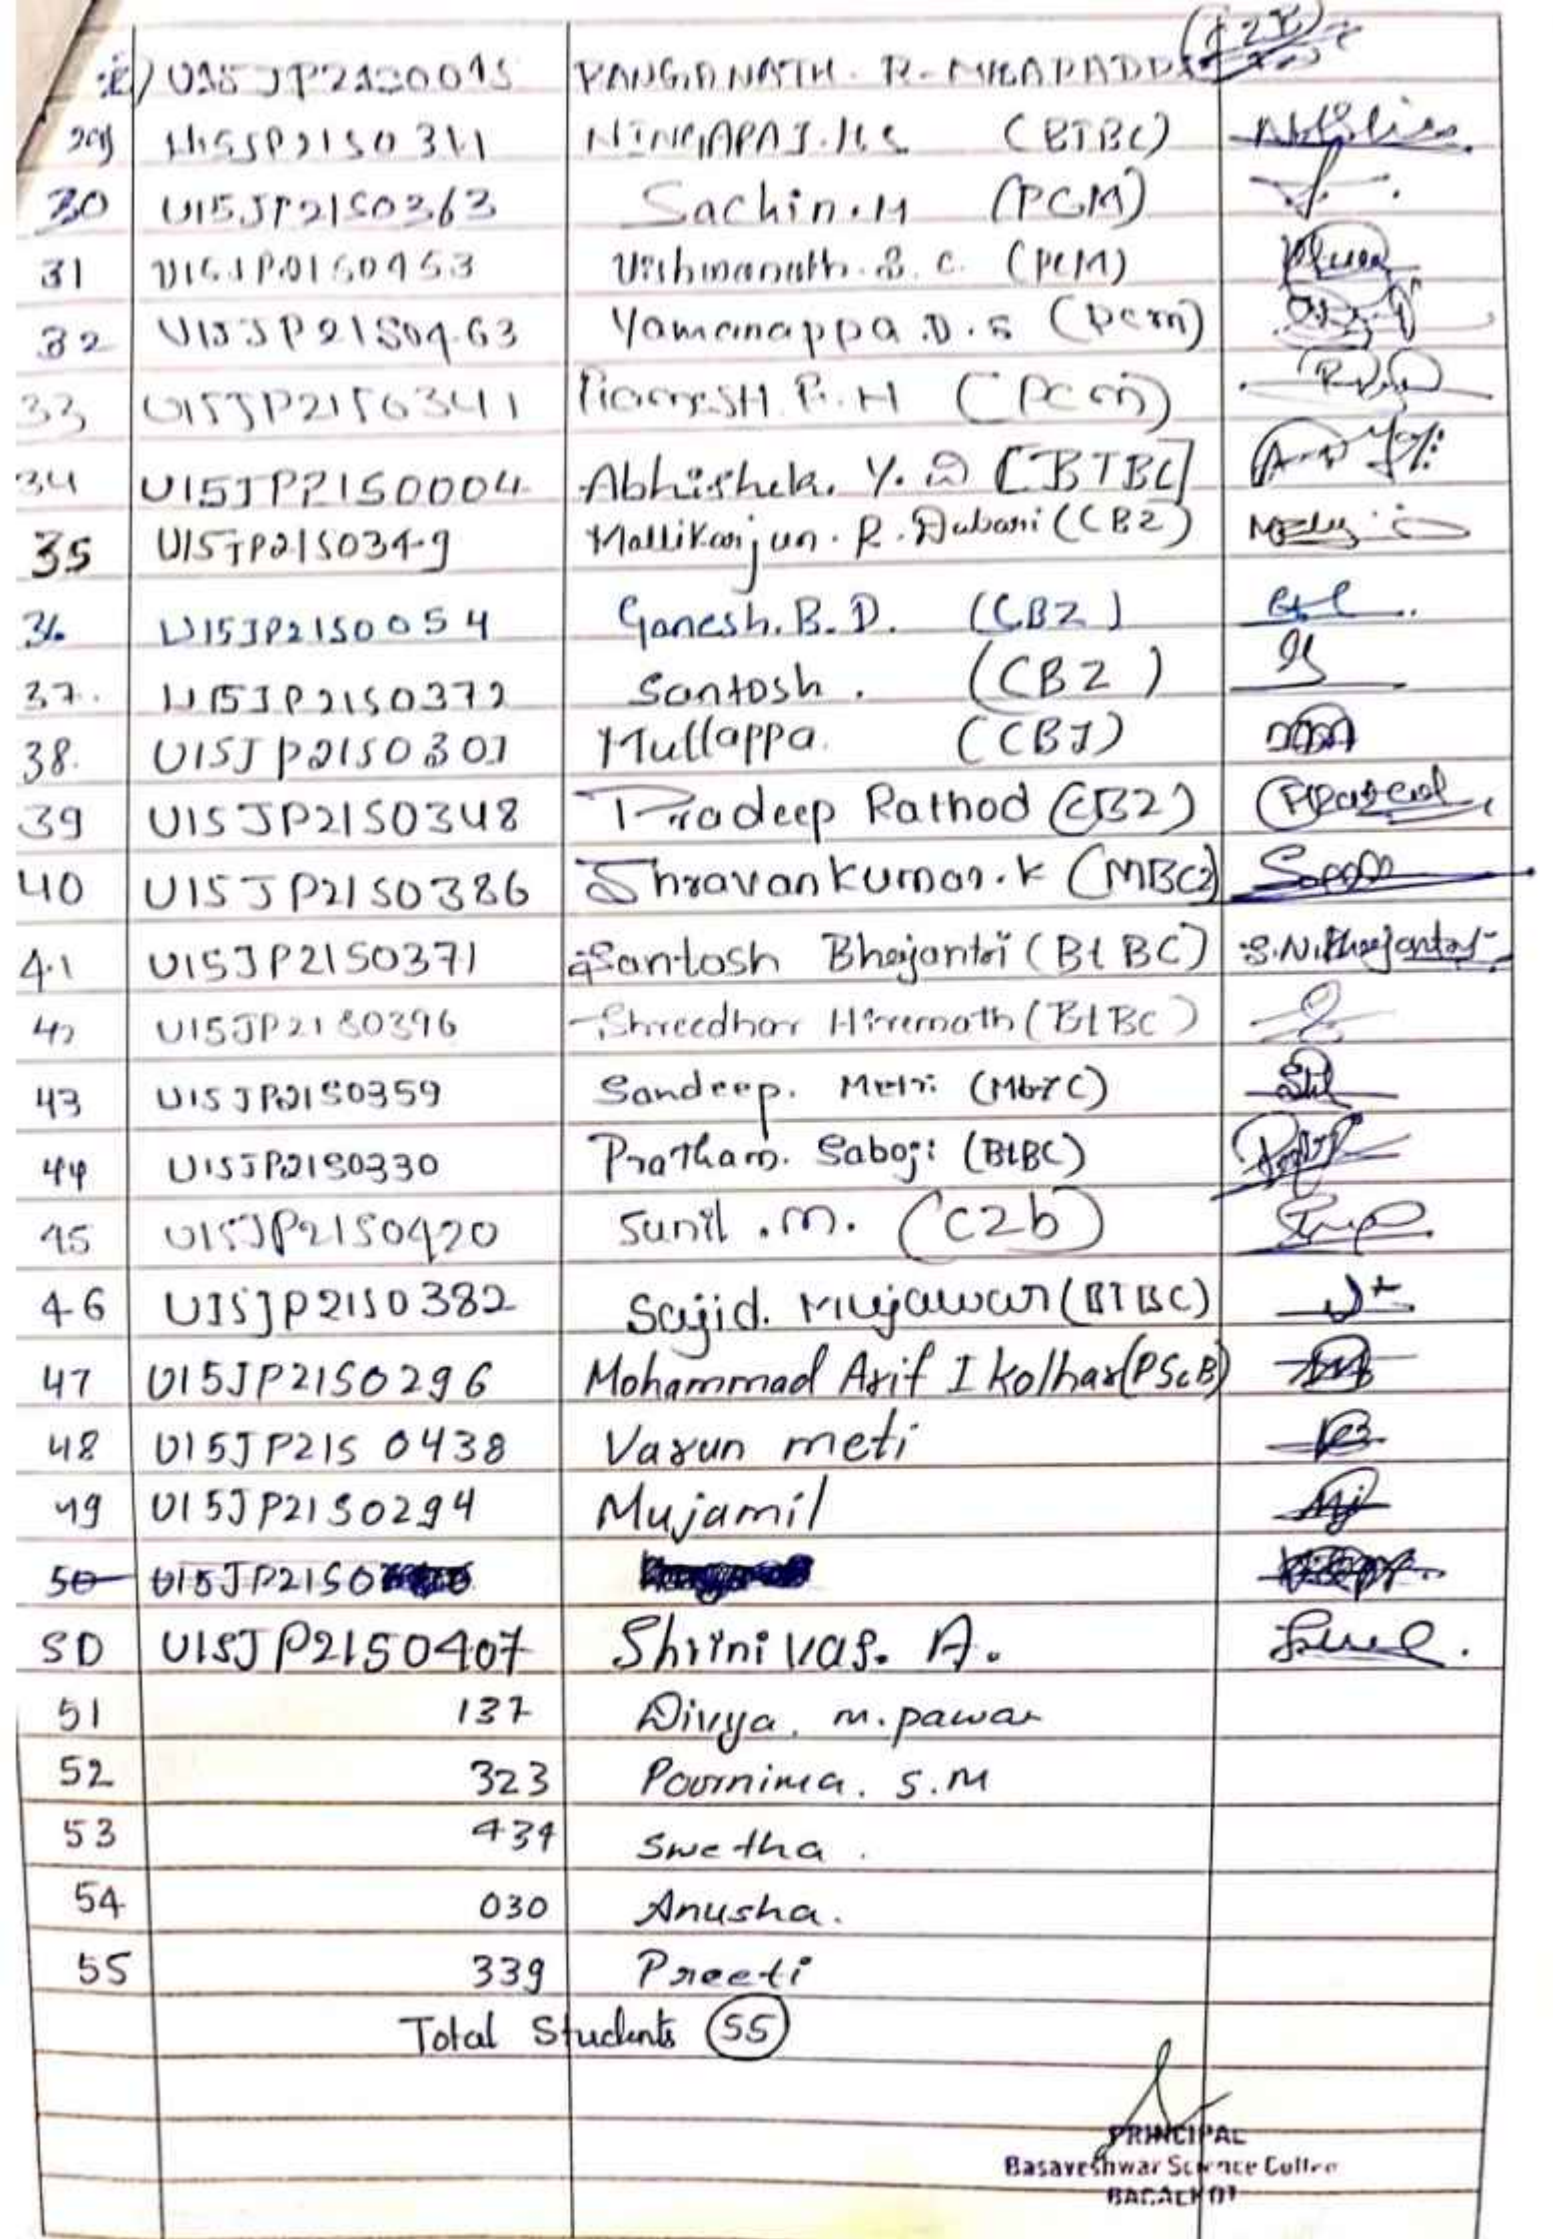 R-
29) (BTBC)
30 U15JP21S0363 Sachin.M (PCM)
31 S. C. (PCM)
32 U15JP21S0463 Yamanappa.D.S (pcm)
33 U15JP21S0341 P.H (Pcm)
34 U15JP21S0004 Abhishek. Y. D [BTBC]
35 U15JP21S0349 Mallikarjun. R. Dabari (CBZ)
36 U15JP21S0054 Ganesh.B.D. (CBZ)
37. U15JP21S0372 Santosh. (CBZ)
38. U15JP21S0301 Mullappa. (CBZ)
39 U15JP21S0348 Pradeep Rathod (CBZ)
40 U15JP21S0386 Shravankumar.K (MBCZ)
41 U15JP21S0371 Santosh Bhajantri (BtBC) S.N.Bhajantri
42 U15JP21S0396 Shreedhar Hiremath (BtBC)
43 U15JP21S0359 Sandeep. Metri
44 U15JP21S0330 Pratham. Saboji (BtBC)
45 U15JP21S0420 Sunil .m. (CZb)
46 U15JP21S0382 Sajid. Mujawar (BTBC)
47 U15JP21S0296 Mohammad Arif I Kolhar
48 U15JP21S 0438 Varun meti
49 U15JP21S0294 Mujamil
50 U15JP21S0
50 U15JP21S0407 Shrinivas. A.
51 137 Divya. m. pawar
52 323 Pournima. S.M
53 434 Swetha.
54 030 Anusha.
55 339 Preeti
Total Students 55
PRINCIPAL
Basaveshwar Science College
BAGALKOT